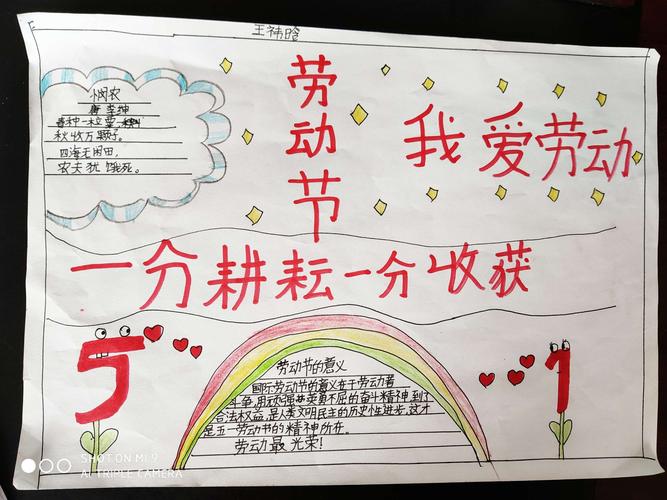 王祎晗
悯农
唐 李绅
春种一粒粟
秋收万颗子。
四海无闲田,
农夫犹饿死。
劳动节
我爱劳动
一分耕耘一分收获
5
1
劳动节的意义
国际劳动节的意义在于劳动者
斗争,用顽强英勇不屈的奋斗精神,到了
合法权益,是人类文明民主的历史性进步,这才
是五一劳动节的精神所在。
劳动最光荣!
SHOT ON MI 9
AI TRIPLE CAMERA